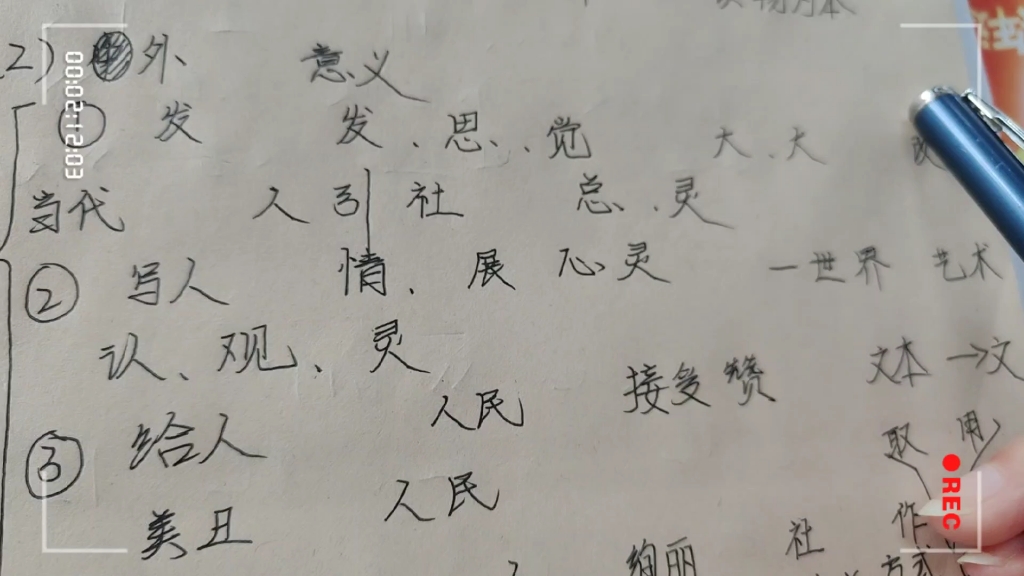 2) 外 意义
① 发 发、思、觉 大、大
当代 人 引 社 总、灵
② 写人 情、展 心灵 一世界 艺术
认、观、灵 接受赞 文本→文
③ 给人 人民 取 用
美丑 人民 社 作
绚丽 方式
00:02:12:03
REC